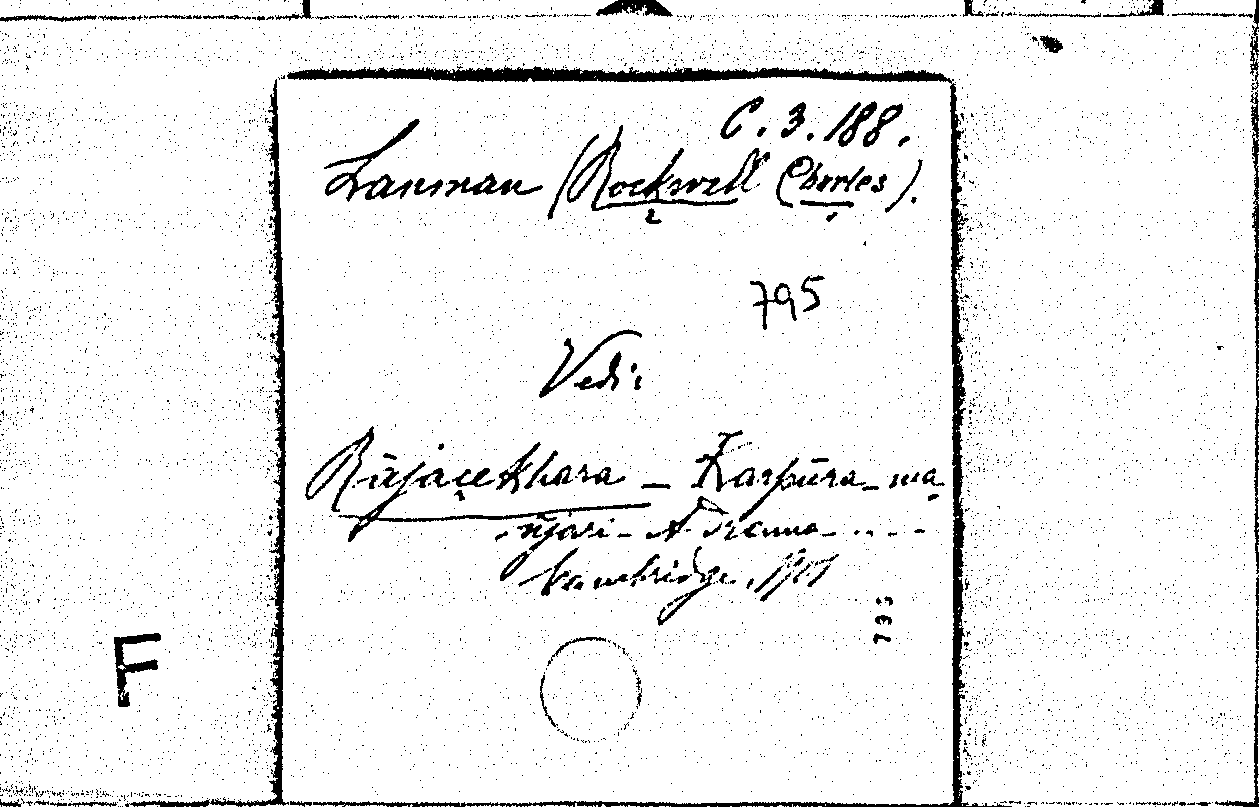 C. 3. 188.
Lanman (Rockwell Charles).
2 1
795
Vedi:
Rājaçekhara – Karpūra-ma-
ñjari – A Drama ....
Cambridge, 1901
795
F